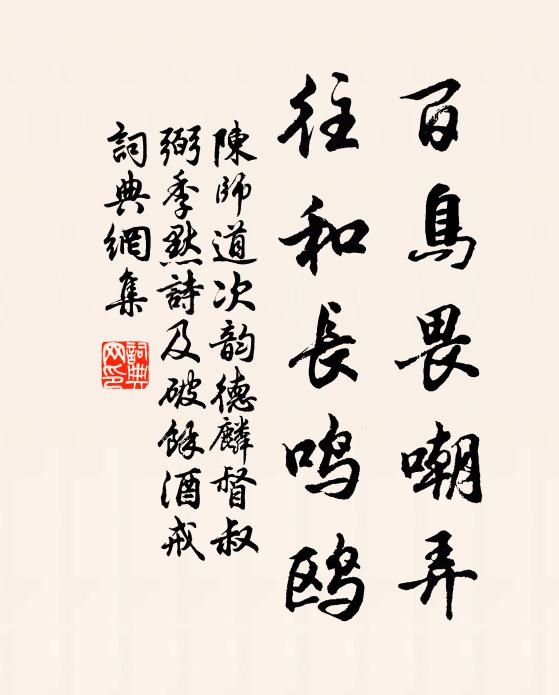 百鳥畏嘲弄
往和長鳴鴎
陳師道次韵德麟督叔
弼季默詩及破餘酒戒
詞典網集
詞典
网印